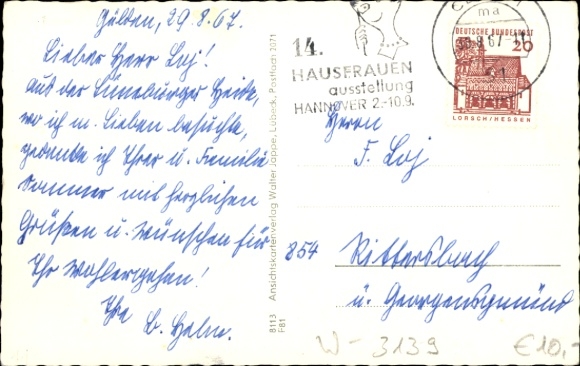 Gülden, 29.8.67.
Lieber Herr Loj!
Aus der Lüneburger Heide,
wo ich m. Lieben besuchte,
gedenke ich Ihrer u. Familie
Sommer mit herzlichen
Grüßen u. wünschen für
Ihr Wohlergehen!
Ihre
B. Helm.
8113 Ansichtskartenverlag Walter Jappe, Lübeck, Postfach 2071
F81
14.
HAUSFRAUEN
ausstellung
HANNOVER 2.-10.9.
ma
DEUTSCHE BUNDESPOST
20
LORSCH/HESSEN
Herrn
F. Loj
854 Rittersbach
ü. Georgensgmünd
W-3139
€10,-